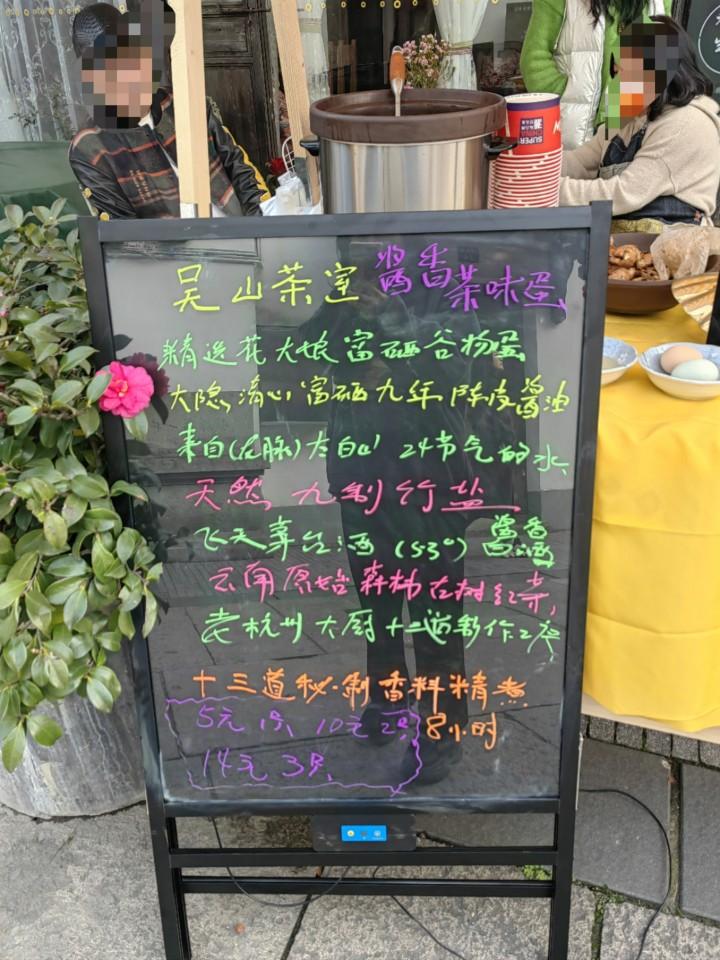 吴山茶室 酱香茶味蛋
精选花大娘富硒谷物蛋
大隐清心富硒九年陈皮酱油
来自(龙脉)太白山 24节气的水
天然 九制竹盐
飞天茅台酒 (53°) 酱香
云南原始森林古树红茶,
老杭州大厨十二道制作工序
十三道秘制香料精煮
8小时
5元1只 10元2只
14元3只
SUPER